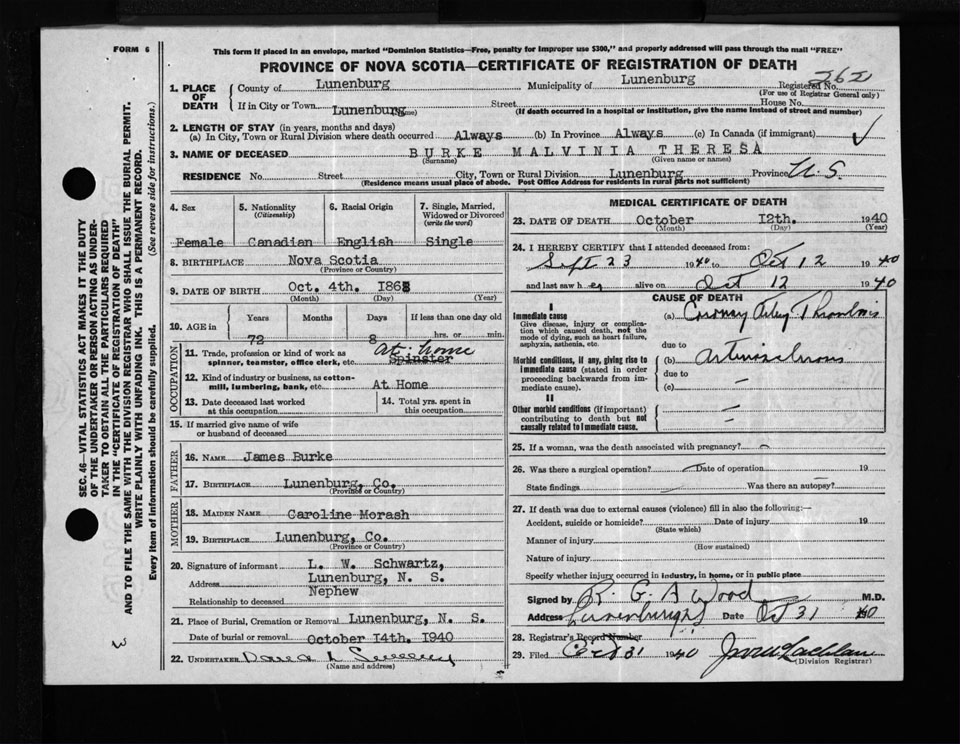 FORM 6
This form if placed in an envelope, marked "Dominion Statistics—Free, penalty for improper use $300," and properly addressed will pass through the mail "FREE"
PROVINCE OF NOVA SCOTIA—CERTIFICATE OF REGISTRATION OF DEATH
SEC. 46—VITAL STATISTICS ACT MAKES IT THE DUTY
OF THE UNDERTAKER OR PERSON ACTING AS UNDER-
TAKER TO OBTAIN ALL THE PARTICULARS REQUIRED
IN THE "CERTIFICATE OF REGISTRATION OF DEATH"
AND TO FILE THE SAME WITH THE DIVISION REGISTRAR WHO SHALL ISSUE THE BURIAL PERMIT.
WRITE PLAINLY WITH UNFADING INK. THIS IS A PERMANENT RECORD.
Every item of information should be carefully supplied. (See reverse side for instructions.)
1. PLACE OF DEATH
County of Lunenburg Municipality of Lunenburg Registered No. 262
(For use of Registrar General only)
If in City or Town Lunenburg Street House No.
(Name) (If death occurred in a hospital or institution, give the name instead of street and number)
2. LENGTH OF STAY (in years, months and days)
(a) In City, Town or Rural Division where death occurred Always (b) In Province Always (c) In Canada (if immigrant)
3. NAME OF DECEASED BURKE MALVINIA THERESA
(Surname) (Given name or names)
RESIDENCE No. Street City, Town or Rural Division Lunenburg Province N.S.
(Residence means usual place of abode. Post Office Address for residents in rural parts not sufficient)
4. Sex 5. Nationality (Citizenship) 6. Racial Origin 7. Single, Married, Widowed or Divorced (write the word)
Female Canadian English Single
8. BIRTHPLACE Nova Scotia
(Province or Country)
9. DATE OF BIRTH Oct. 4th. 1868
(Month) (Day) (Year)
10. AGE in Years Months Days If less than one day old
72 8 hrs. or min.
OCCUPATION
11. Trade, profession or kind of work as spinner, teamster, office clerk, etc. Spinster At home
12. Kind of industry or business, as cotton-mill, lumbering, bank, etc. At Home
13. Date deceased last worked at this occupation
14. Total yrs. spent in this occupation
15. If married give name of wife or husband of deceased
FATHER
16. NAME James Burke
17. BIRTHPLACE Lunenburg, Co.
(Province or Country)
MOTHER
18. MAIDEN NAME Caroline Morash
19. BIRTHPLACE Lunenburg, Co.
(Province or Country)
20. Signature of informant L. W. Schwartz,
Address Lunenburg, N. S.
Relationship to deceased Nephew
21. Place of Burial, Cremation or Removal Lunenburg, N. S.
Date of burial or removal October 14th. 1940
22. UNDERTAKER
(Name and address)
MEDICAL CERTIFICATE OF DEATH
23. DATE OF DEATH October 12th. 1940
(Month) (Day) (Year)
24. I HEREBY CERTIFY that I attended deceased from:
Sept 23 1940 to Oct 12 1940
and last saw her alive on Oct 12 1940
CAUSE OF DEATH
I
Immediate cause
Give disease, injury or complication which caused death, not the mode of dying, such as heart failure, asphyxia, asthenia, etc.
(a) Coronary Artery Thrombosis
due to
Morbid conditions, if any, giving rise to immediate cause (stated in order proceeding backwards from immediate cause).
(b) Arteriosclerosis
due to
(c) —
II
Other morbid conditions (if important) contributing to death but not causally related to immediate cause.
25. If a woman, was the death associated with pregnancy?
26. Was there a surgical operation? Date of operation 19
State findings Was there an autopsy?
27. If death was due to external causes (violence) fill in also the following:—
Accident, suicide or homicide? Date of injury 19
(State which)
Manner of injury
(How sustained)
Nature of injury
Specify whether injury occurred in industry, in home, or in public place
Signed by R. G. A Wood M.D.
Address Lunenburg Date Oct 31 40
28. Registrar's Record Number
29. Filed Oct 31 1940
(Division Registrar)